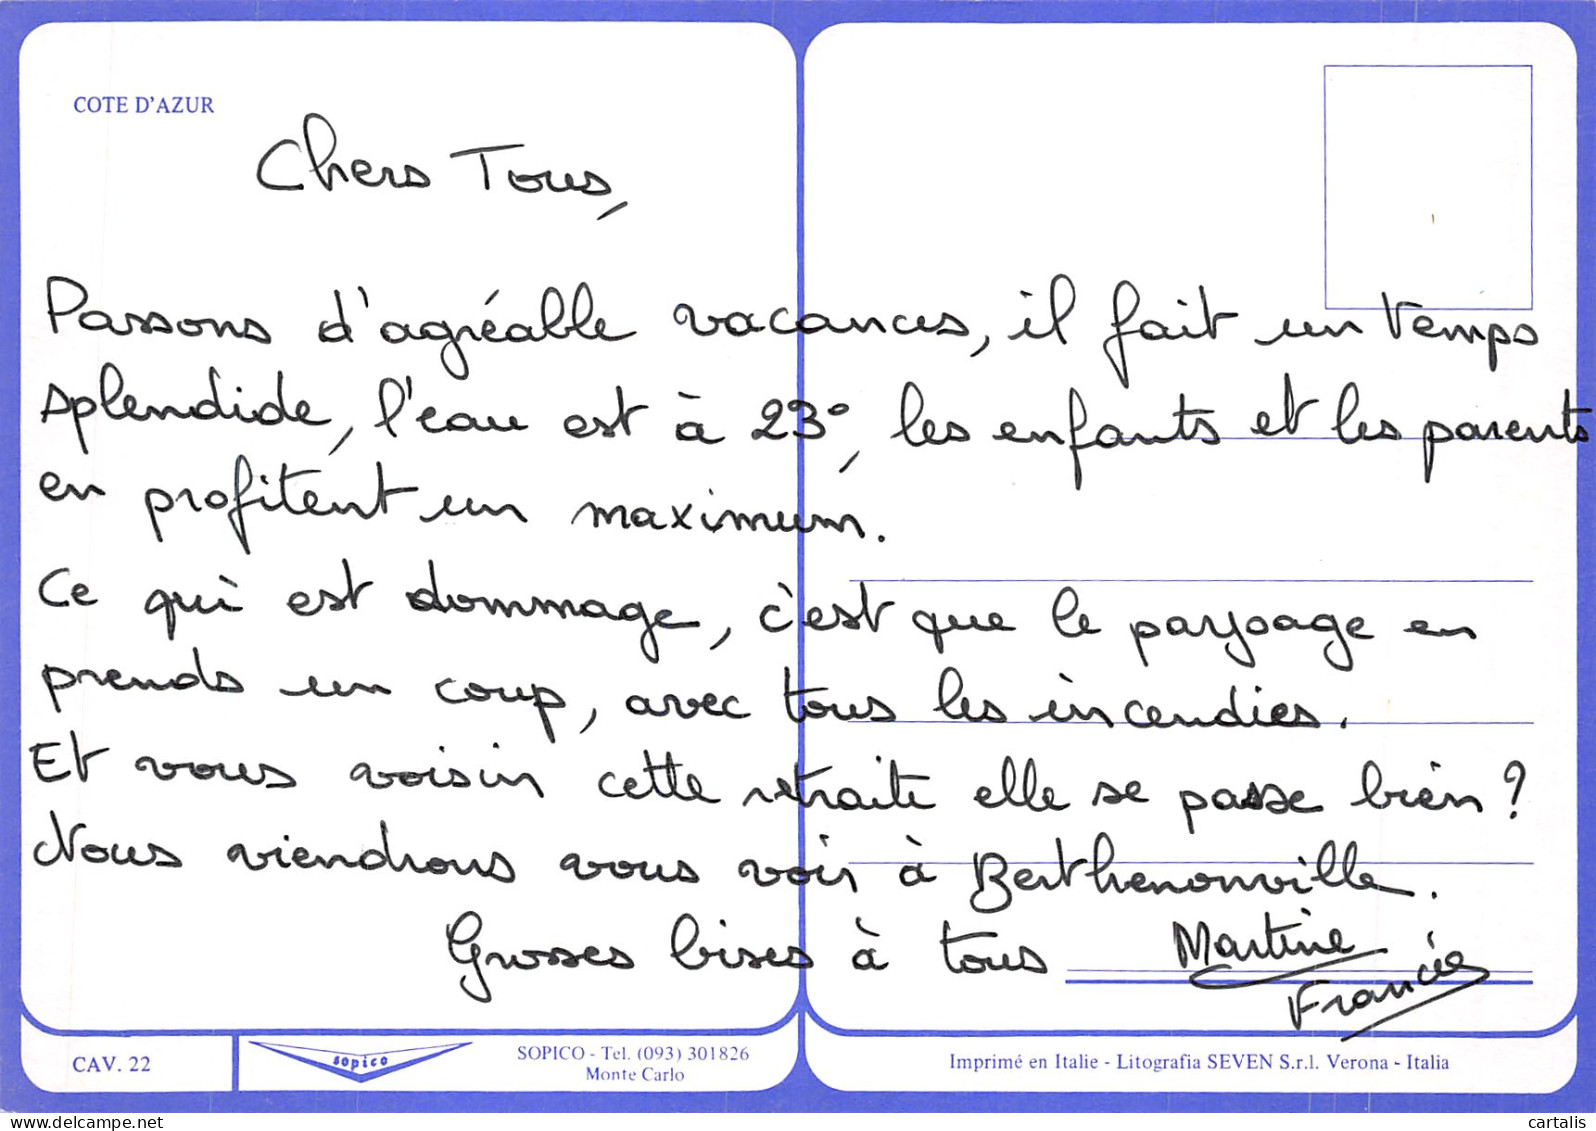 COTE D'AZUR
Chers Tous,
Passons d'agréable vacances, il fait un temps
splendide, l'eau est à 23°, les enfants et les parents
en profitent un maximum.
Ce qui est dommage, c'est que le paysage en
prends un coup, avec tous les incendies.
Et vous voisin cette retraite elle se passe bien ?
Nous viendrons vous voir à Berthenonville.
Grosses bises à tous Martine
Francis
CAV. 22
sopico
SOPICO - Tel. (093) 301826
Monte Carlo
Imprimé en Italie - Litografia SEVEN S.r.l. Verona - Italia
cartalis